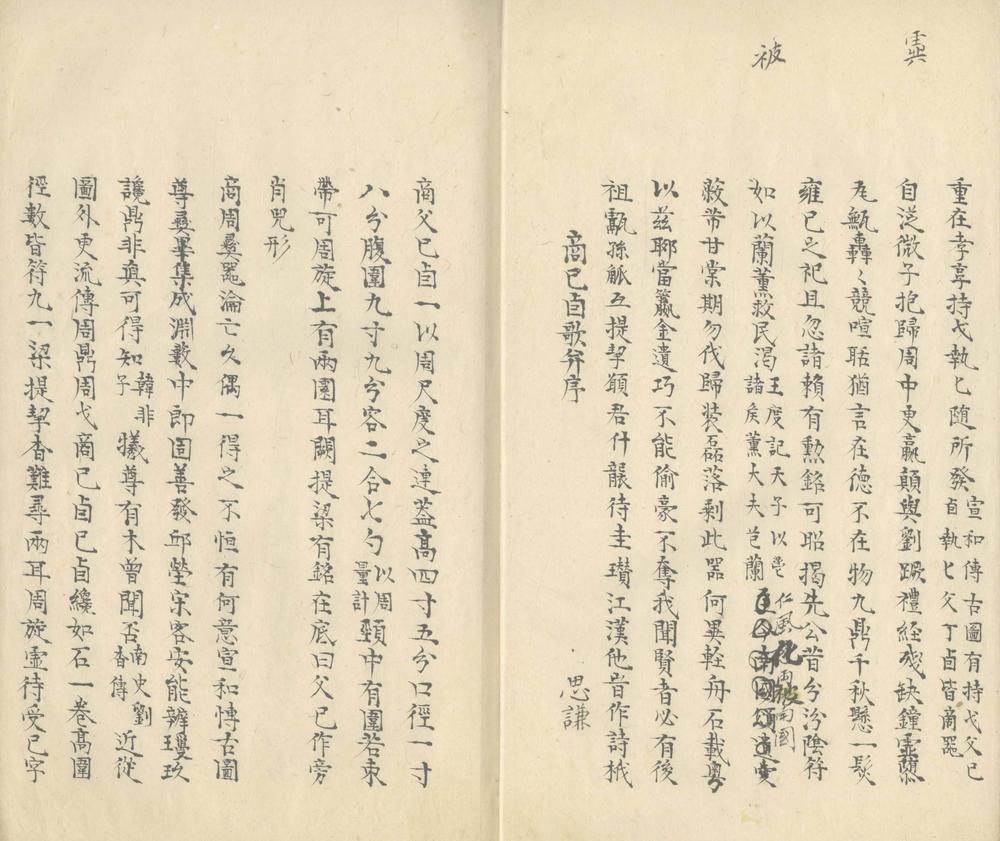 虡
被
重在孝享持戈執匕随所發宣和傳古圖有持戈父已卣執匕父丁卣皆商器
自從微子抱歸周中更嬴顛與劉蹶禮經殘缺鐘虡隳
瓦甒轟〻競喧聒猶言在德不在物九鼎千秋懸一髮
雍已之祀且忽諸賴有勲銘可昭揭先公昔兮汾陰符
如以蘭薰救民渴王度記天子以鬯諸矦薰大夫芑蘭仁風化雨被南國
蔽芾甘棠期勿伐歸装磊落剩此器何異輕舟石載粤
以兹聊當籯金遺巧不能偷豪不奪我聞賢者必有後
祖甗孫鬲互提挈願君什襲待圭瓚江漢他旹作詩栻
思謙
商已卣歌并序
商父已卣一以周尺度之連葢高四寸五兮口徑一寸
八兮腹圍九寸九兮容二合七勺以周量計頸中有圍若束
帶可周旋上有兩圜耳闕提梁有銘在底曰父已作旁
肖兕形
商周彝器淪亡久偶一得之不恒有何意宣和博古圖
尊彝畢集成淵藪中郎固善發邱塋宋客安能辨璞玖
讒鼎非真可得知韓非子犧尊有木曾聞否南史劉杳傳近從
圖外更流傳周鼎周戈商已卣已卣纔如石一卷高圍
徑數皆符九一梁提挈杳難尋兩耳周旋虛待受已字